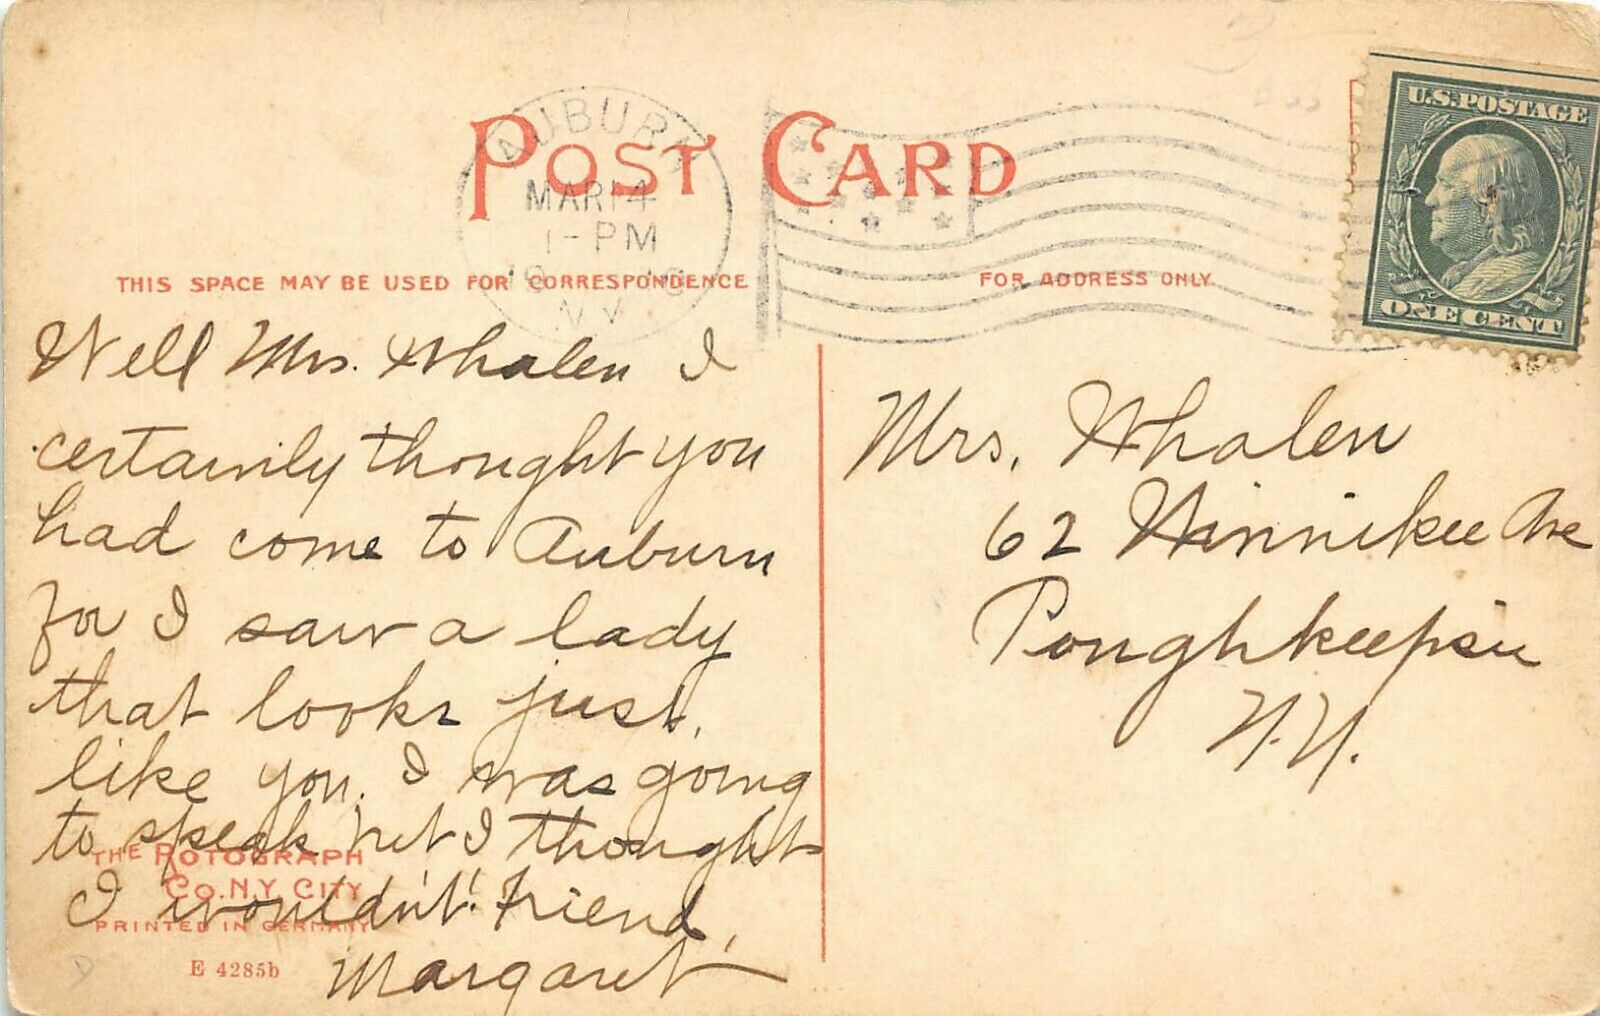 POST CARD
AUBURN
MAR 14
1-PM
N.Y.
U.S. POSTAGE
ONE CENT
THIS SPACE MAY BE USED FOR CORRESPONDENCE
FOR ADDRESS ONLY
Well Mrs. Whalen I
certainly thought you
had come to Auburn
for I saw a lady
that looks just
like you. I was going
to speak but I thought
I wouldn't! Friend,
Margaret
Mrs. Whalen
62 Winnikee Ave
Poughkeepsie
N.Y.
THE ROTOGRAPH
CO. N.Y. CITY
PRINTED IN GERMANY
E 4285b
D